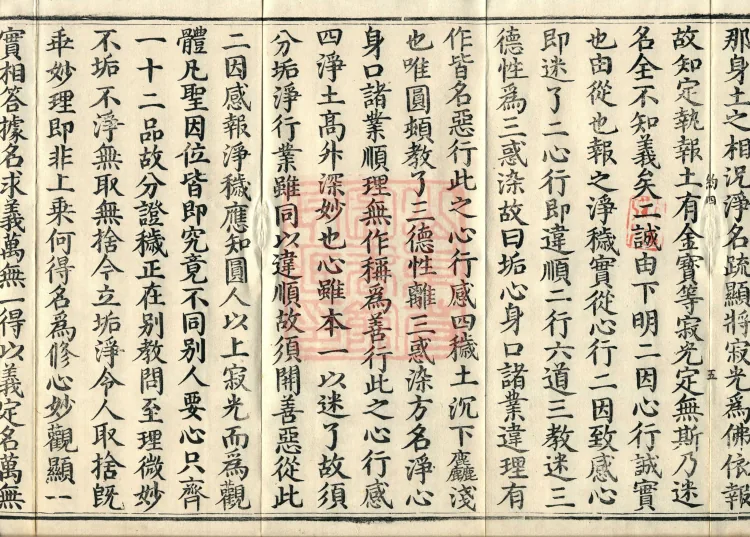 那身土之相況淨名疏顯將寂光爲佛依報
故知定執報土有金寶等寂光定無斯乃迷
名全不知義矣二誠由下明二因心行誠實
也由從也報之淨穢實從心行二因致感心
即迷了二心行即違順二行六道三教迷三
德性爲三惑染故曰垢心身口諸業違理有
作皆名惡行此之心行感四穢土沉下麤淺
也唯圓頓教了三德性離三惑染方名淨心
身口諸業順理無作稱爲善行此之心行感
四淨土高升深妙也心雖本一以迷了故須
分垢淨行業雖同以違順故須開善惡從此
二因感報淨穢應知圓人以上寂光而爲觀
體凡聖因位皆即究竟不同別人要心只齊
一十二品故分證穢正在別教問至理微妙
不垢不淨無取無捨今立垢淨令人取捨既
乖妙理即非上乘何得名爲修心妙觀顯一
實相答據名求義萬無一得以義定名萬無
鈔四
五